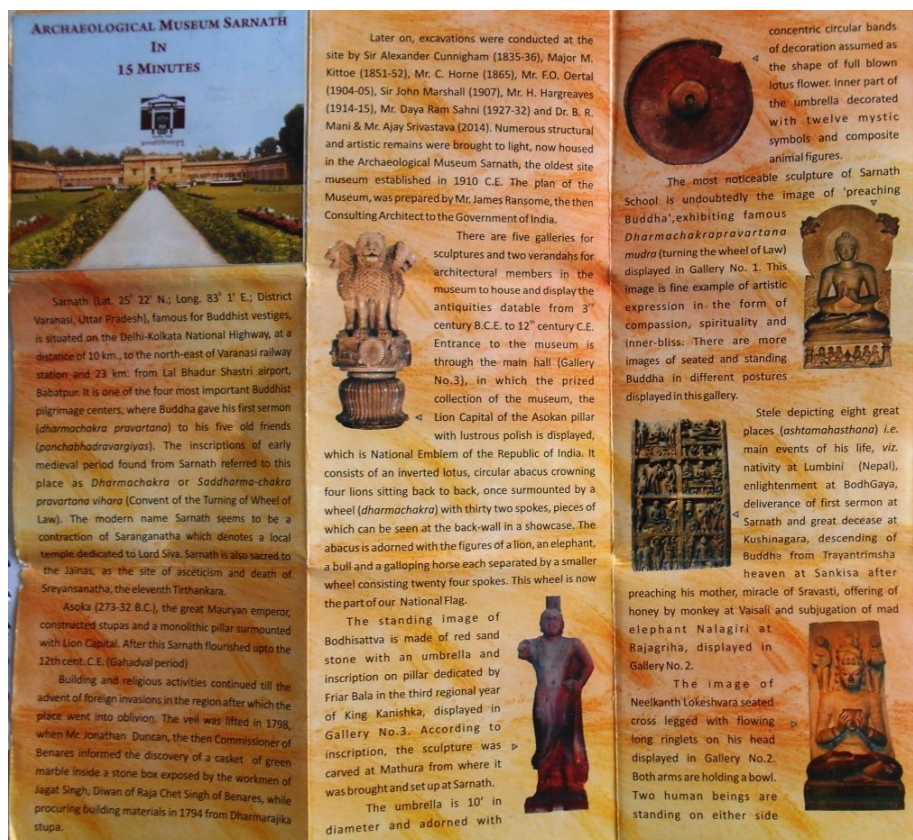 ARCHAEOLOGICAL MUSEUM SARNATH
IN
15 MINUTES
Sarnath (Lat. 25° 22' N.; Long. 83° 1' E.; District
Varanasi, Uttar Pradesh), famous for Buddhist vestiges,
is situated on the Delhi-Kolkata National Highway, at a
distance of 10 km., to the north-east of Varanasi railway
station and 23 km. from Lal Bhadur Shastri airport,
Babatpur. It is one of the four most important Buddhist
pilgrimage centers, where Buddha gave his first sermon
(dharmachakra pravartana) to his five old friends
(panchabhadravargiyas). The inscriptions of early
medieval period found from Sarnath referred to this
place as Dharmachakra or Saddharma-chakra
pravartana vihara (Convent of the Turning of Wheel of
Law). The modern name Sarnath seems to be a
contraction of Saranganatha which denotes a local
temple dedicated to Lord Siva. Sarnath is also sacred to
the Jainas, as the site of asceticism and death of
Sreyansanatha, the eleventh Tirthankara.
Asoka (273-32 B.C.), the great Mauryan emperor,
constructed stupas and a monolithic pillar surmounted
with Lion Capital. After this Sarnath flourished upto the
12th cent. C.E. (Gahadval period)
Building and religious activities continued till the
advent of foreign invasions in the region after which the
place went into oblivion. The veil was lifted in 1798,
when Mr. Jonathan Duncan, the then Commissioner of
Benares informed the discovery of a casket of green
marble inside a stone box exposed by the workmen of
Jagat Singh, Diwan of Raja Chet Singh of Benares, while
procuring building materials in 1794 from Dharmarajika
stupa.
Later on, excavations were conducted at the
site by Sir Alexander Cunnigham (1835-36), Major M.
Kittoe (1851-52), Mr. C. Horne (1865), Mr. F.O. Oertal
(1904-05), Sir John Marshall (1907), Mr. H. Hargreaves
(1914-15), Mr. Daya Ram Sahni (1927-32) and Dr. B. R.
Mani & Mr. Ajay Srivastava (2014). Numerous structural
and artistic remains were brought to light, now housed
in the Archaeological Museum Sarnath, the oldest site
museum established in 1910 C.E. The plan of the
Museum, was prepared by Mr. James Ransome, the then
Consulting Architect to the Government of India.
There are five galleries for
sculptures and two verandahs for
architectural members in the
museum to house and display the
antiquities datable from 3rd
century B.C.E. to 12th century C.E.
Entrance to the museum is
through the main hall (Gallery
No.3), in which the prized
collection of the museum, the
Lion Capital of the Asokan pillar
with lustrous polish is displayed,
which is National Emblem of the Republic of India. It
consists of an inverted lotus, circular abacus crowning
four lions sitting back to back, once surmounted by a
wheel (dharmachakra) with thirty two spokes, pieces of
which can be seen at the back-wall in a showcase. The
abacus is adorned with the figures of a lion, an elephant,
a bull and a galloping horse each separated by a smaller
wheel consisting twenty four spokes. This wheel is now
the part of our National Flag.
The standing image of
Bodhisattva is made of red sand
stone with an umbrella and
inscription on pillar dedicated by
Friar Bala in the third regional year
of King Kanishka, displayed in
Gallery No.3. According to
inscription, the sculpture was
carved at Mathura from where it
was brought and set up at Sarnath.
The umbrella is 10' in
diameter and adorned with
concentric circular bands
of decoration assumed as
the shape of full blown
lotus flower. Inner part of
the umbrella decorated
with twelve mystic
symbols and composite
animal figures.
The most noticeable sculpture of Sarnath
School is undoubtedly the image of 'preaching
Buddha', exhibiting famous
Dharmachakrapravartana
mudra (turning the wheel of Law)
displayed in Gallery No. 1. This
image is fine example of artistic
expression in the form of
compassion, spirituality and
inner-bliss. There are more
images of seated and standing
Buddha in different postures
displayed in this gallery.
Stele depicting eight great
places (ashtamahasthana) i.e.
main events of his life, viz.
nativity at Lumbini (Nepal),
enlightenment at BodhGaya,
deliverance of first sermon at
Sarnath and great decease at
Kushinagara, descending of
Buddha from Trayantrimsha
heaven at Sankisa after
preaching his mother, miracle of Sravasti, offering of
honey by monkey at Vaisali and subjugation of mad
elephant Nalagiri at
Rajagriha, displayed in
Gallery No. 2.
The image of
Neelkanth Lokeshvara seated
cross legged with flowing
long ringlets on his head
displayed in Gallery No.2.
Both arms are holding a bowl.
Two human beings are
standing on either side